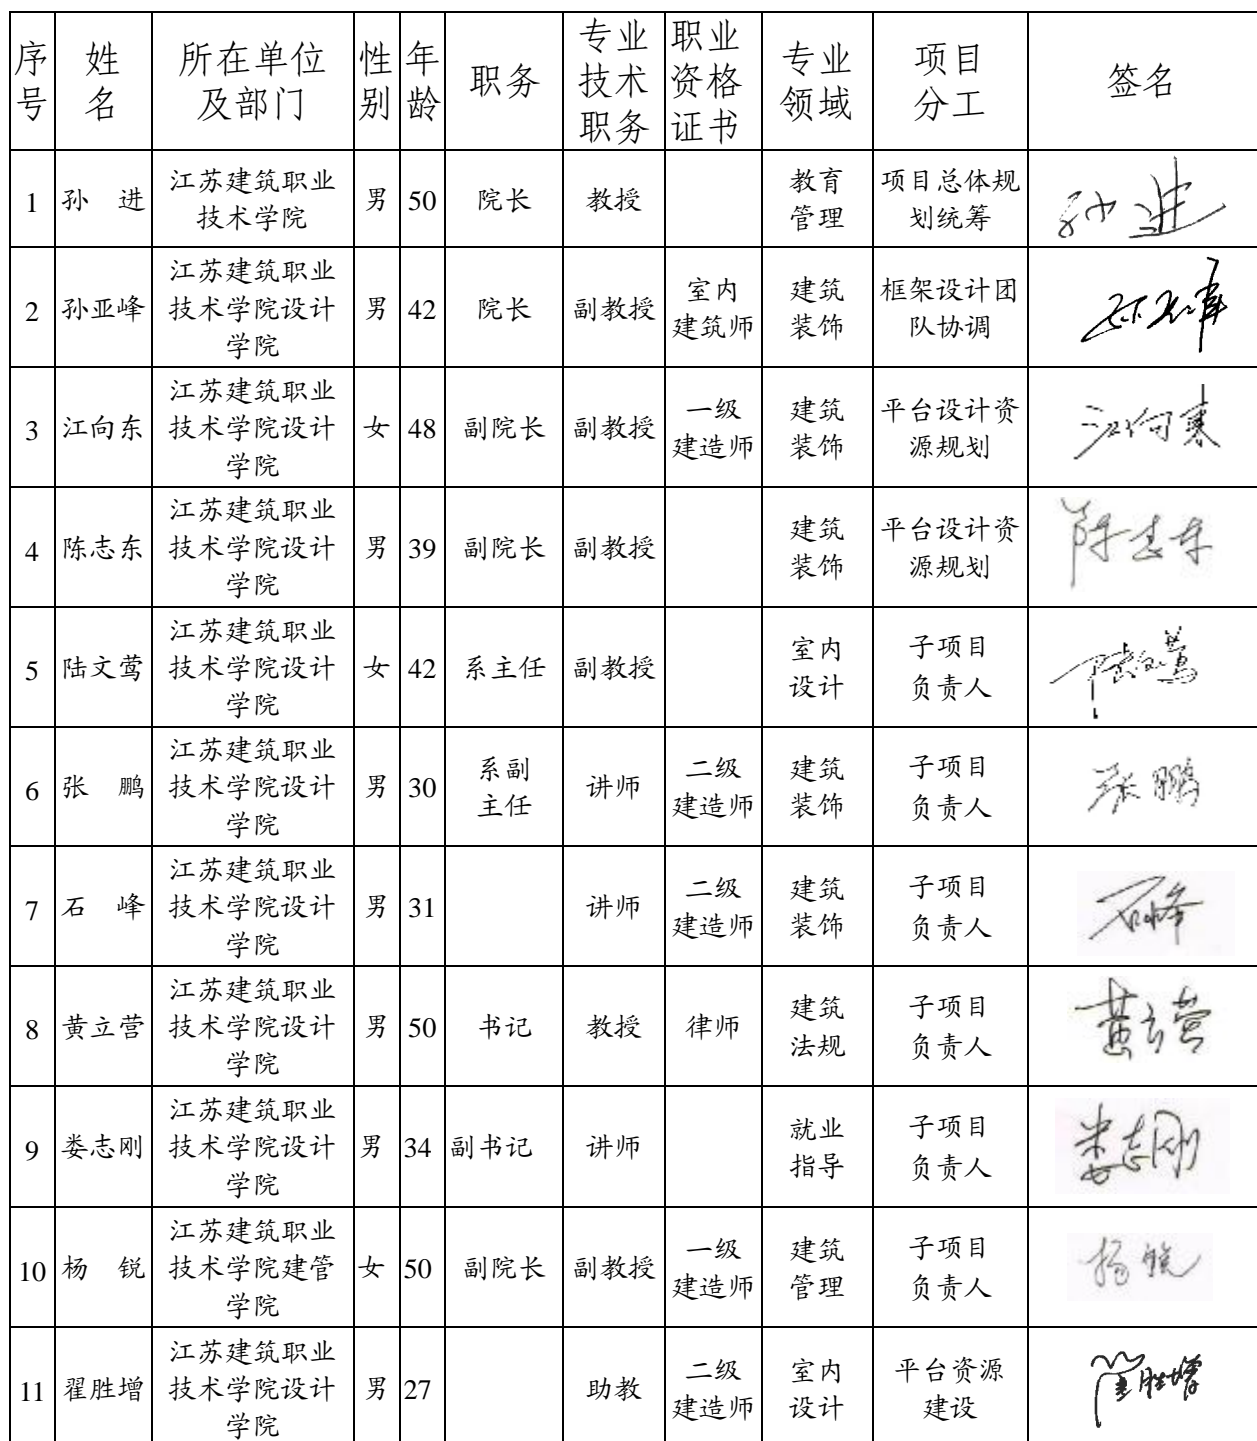 序号 姓名 所在单位及部门 性别 年龄 职务 专业技术职务 职业资格证书 专业领域 项目分工 签名
1 孙 进 江苏建筑职业技术学院 男 50 院长 教授 教育管理 项目总体规划统筹 孙进
2 孙亚峰 江苏建筑职业技术学院设计学院 男 42 院长 副教授 室内建筑师 建筑装饰 框架设计团队协调
3 江向东 江苏建筑职业技术学院设计学院 女 48 副院长 副教授 一级建造师 建筑装饰 平台设计资源规划 江向东
4 陈志东 江苏建筑职业技术学院设计学院 男 39 副院长 副教授 建筑装饰 平台设计资源规划 陈志东
5 陆文莺 江苏建筑职业技术学院设计学院 女 42 系主任 副教授 室内设计 子项目负责人 陆文莺
6 张 鹏 江苏建筑职业技术学院设计学院 男 30 系副主任 讲师 二级建造师 建筑装饰 子项目负责人 张鹏
7 石 峰 江苏建筑职业技术学院设计学院 男 31 讲师 二级建造师 建筑装饰 子项目负责人 石峰
8 黄立营 江苏建筑职业技术学院设计学院 男 50 书记 教授 律师 建筑法规 子项目负责人 黄立营
9 娄志刚 江苏建筑职业技术学院设计学院 男 34 副书记 讲师 就业指导 子项目负责人 娄志刚
10 杨 锐 江苏建筑职业技术学院建管学院 女 50 副院长 副教授 一级建造师 建筑管理 子项目负责人 杨锐
11 翟胜增 江苏建筑职业技术学院设计学院 男 27 助教 二级建造师 室内设计 平台资源建设 翟胜增